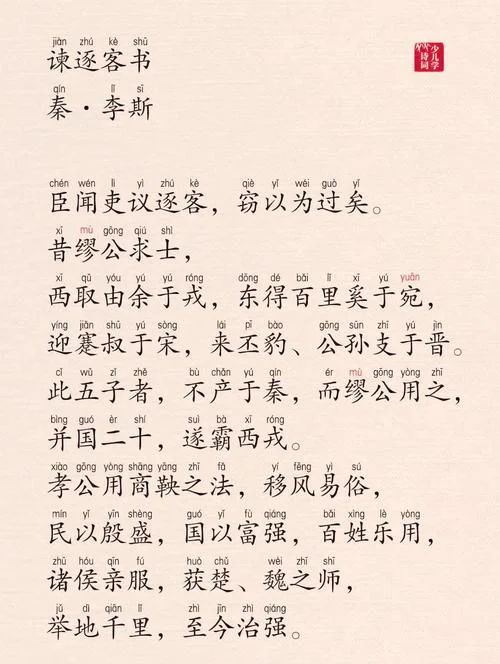 jiàn zhú kè shū
谏逐客书
qín lǐ sī
秦·李斯
少儿学
诗词
chén wén lì yì zhú kè qiè yǐ wéi guò yǐ
臣闻吏议逐客，窃以为过矣。
xī mù gōng qiú shì
昔缪公求士，
xī qǔ yóu yú yú róng dōng dé bǎi lǐ xī yú yuān
西取由余于戎，东得百里奚于宛，
yíng jiǎn shū yú sòng lái pī bào gōng sūn zhī yú jìn
迎蹇叔于宋，来丕豹、公孙支于晋。
cǐ wǔ zǐ zhě bù chǎn yú qín ér mù gōng yòng zhī
此五子者，不产于秦，而缪公用之，
bìng guó èr shí suì bà xī róng
并国二十，遂霸西戎。
xiào gōng yòng shāng yāng zhī fǎ yí fēng yì sú
孝公用商鞅之法，移风易俗，
mín yǐ yīn shèng guó yǐ fù qiáng bǎi xìng lè yòng
民以殷盛，国以富强，百姓乐用，
zhū hóu qīn fú huò chǔ wèi zhī shī
诸侯亲服，获楚、魏之师，
jǔ dì qiān lǐ zhì jīn zhì qiáng
举地千里，至今治强。